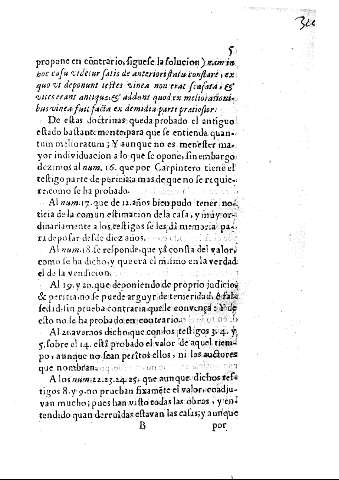 5
propone en contrario, siguese la solucion) nam in
hoc casu videtur satis de anteriori statu constare, ex
quo vt deponunt testes vinea non erat & 
vites erant antiquæ, & addunt quod ex meliorationi-
bus vinea fuit facta ex demidia parte pratiosior.
De estas doctrinas queda probado el antiguo
estado bastantemente para que se entienda quan-
tum melioratum; Y aunque no es menester ma-
yor individuacion a lo que se opone, sin embargo
dezimos al num. 16. que por Carpintero tiene el
testigo parte de pericia, mas de que no se requie-
re, como se ha probado.
Al num. 17. que de 12. años bien pudo tener no-
ticia de la comun estimacion de la casa, y mas or-
dinariamente a los testigos se les dà memoria pa-
ra deposar desde diez años.
Al num. 18. se responde, que yà consta del valor,
como se ha dicho, y que era el mismo en la verdad
el de la vendicion.
Al 19. y 20. que deponiendo de proprio judicio
& pericia, no se puede arguyr de temeridad, ò fal-
sedad sin prueba contraria que le convença: Y de
esto no se ha probado en contrario.
Al 21. avemos dicho, que con los testigos 3. 4. y
5. sobre el 14. està probado el valor de aquel tiem-
po, aunque no sean peritos ellos, ni los auctores
que nombran.
A los num. 22. 23. 24. 25. que aunque dichos tes-
tigos 8. y 9. no prueban fixamẽte el valor, coadju-
van mucho; pues han visto todas las obras, y en-
tendido quan derruidas estavan las casas; y aunque
B por